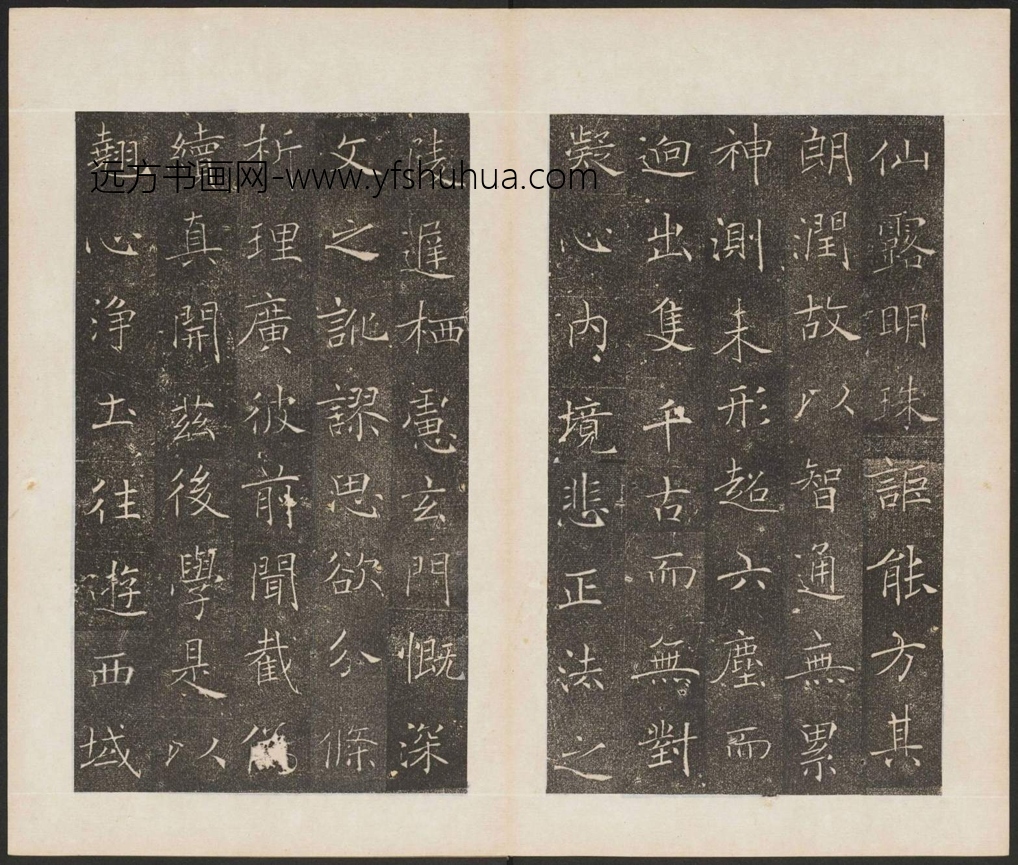 仙露明珠詎能方其
朗潤故以智通無累
神測未形超六塵而
逈出隻千古而無對
凝心內境悲正法之
陵遲栖慮玄門慨深
文之訛謬思欲分條
析理廣彼前聞截僞
續真開茲後學是以
翹心淨土往遊西域
远方书画网-www.yfshuhua.com